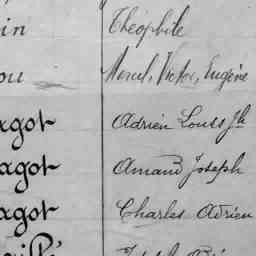 in Théophile
ou Marcel, Victor, Eugène
agot Adrien Louis Jh
agot Amand Joseph
agot Charles Adrien